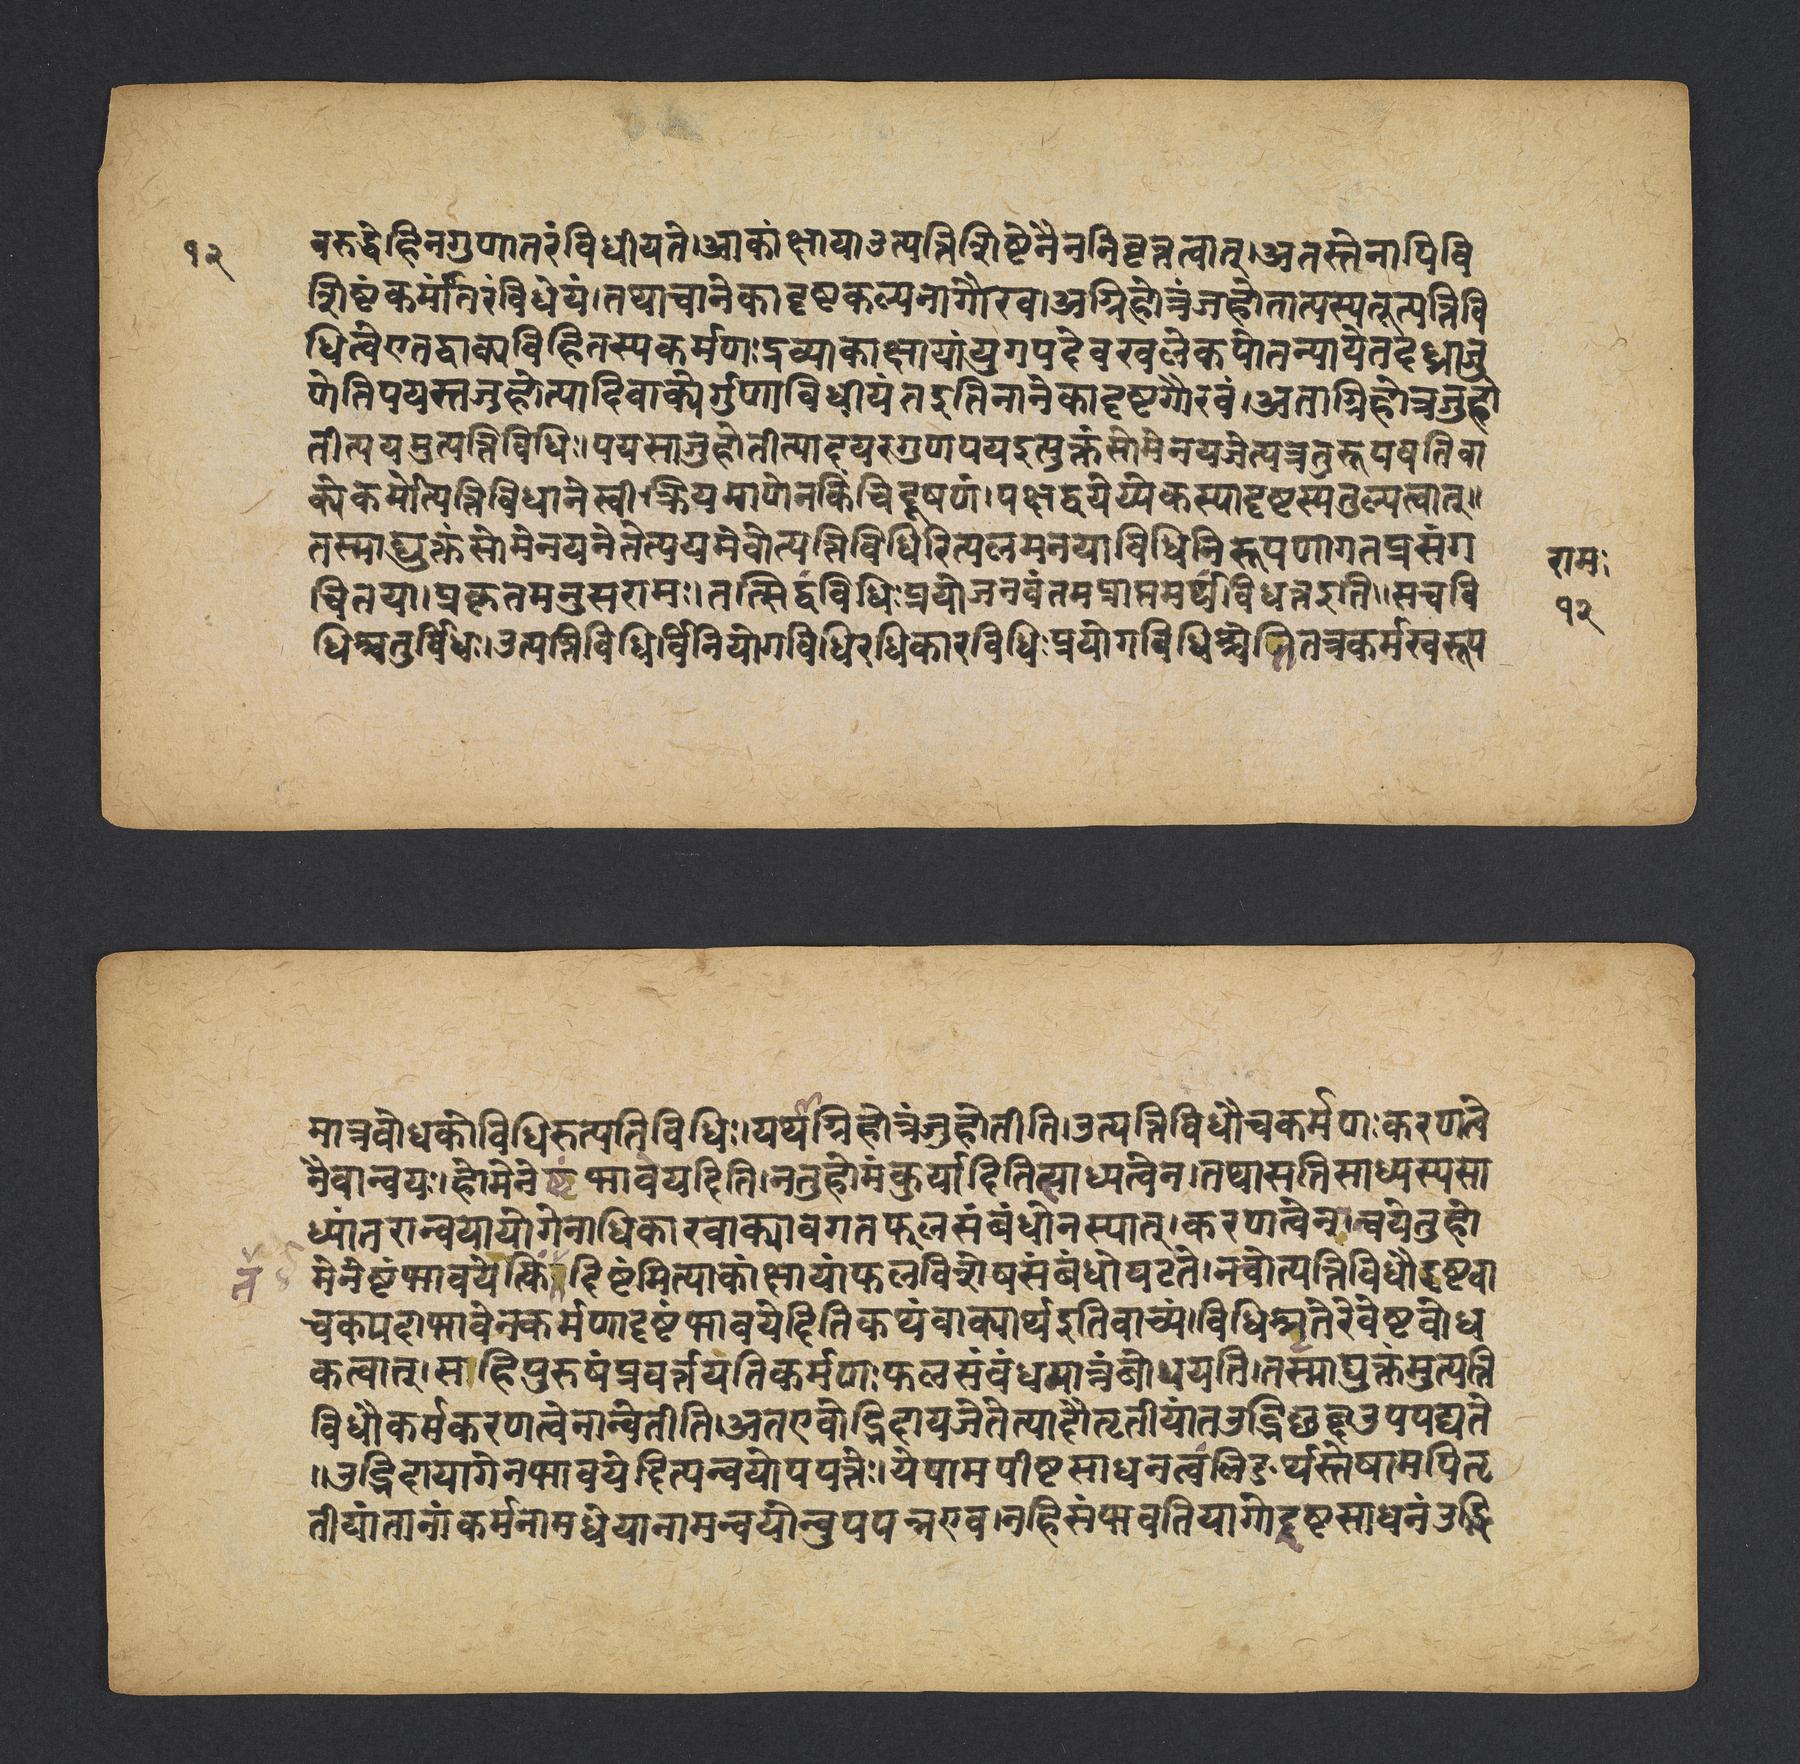 १२
वरुद्धेहिनगुणातरंविधीयते।आकांक्षायाउत्पत्तिशिष्टेनैवनिवृत्तत्वात्।अतस्तेनापिवि
शिष्टंकर्मांतरंविधेयं।तथाचानेकादृष्टकल्पनागौरव।अग्निहोत्रंजहोतात्यस्यतूत्पत्तिवि
धित्वेएतद्वाक्यविहितस्यकर्मणःद्रव्याकाक्षायांयुगपदेवखलेकपोतन्यायेत
णेतिपयस्तजुहोत्यादिवाक्येर्गुणाविधीयंतइतिनानेकादृष्टगौरवं।अताग्निहोत्रजुहो
तीत्ययमुत्पत्तिविधिः।पयसाजुहोतीत्यादयस्गुणपयइत्युक्तंसोमेनयजेत्यत्रतुरूपषतिवा
क्येकर्मोत्पित्तिविधानेस्वीक्रियमाणेनकिंचिद्दूषणं।पक्षद्वयेय्येकस्यादृष्टस्यतुल्यत्वात्॥
तस्माद्युक्तंसोमेनयनेतेत्ययमेवोत्पत्तिविधिरित्यलमनयाविधिनिरूपणागतप्रसंग
चितया।प्रकृतमनुसरामः।तत्सिद्वंविधिःप्रयोजनवंतमप्राप्तमर्थंविधत्तइति॥सचवि
धिश्चतुर्विधः।उत्पत्तिविधिर्विनियोगविधिरधिकारविधिःप्रयोगविधिश्चेतितत्रकर्मस्वरूप
रामः
१२
मात्रबोधकोविधिरुत्पतिविधिः।यथाग्निहोत्रंजुहोतीति।उत्पत्तिविधौचकर्मणःकरणत्वे
नैवान्वयः।होमेनेष्टंभावयेदिति।नतुहोमंकुर्यादितित्साध्यत्वेन।तथासतिसाध्यस्यसा
ध्यांतरान्वयायोगेनाधिकारवाक्यावगतफलसंबंधोनस्यात्।करणत्वेनान्वयेतुहो
मेनेष्टंभावयेत्किंतदिष्टंमित्याकांक्षायांफलविशेषसंबंधोघटते।नचोत्पत्तिविधौइष्टवा
चकपदाभावेनकर्मणादृष्टंभावयेदितिकथंवाक्यार्थइतिवाच्यं।विधिश्रुतेरेवेष्टबोध
कत्वात्।साहिपुरुषंप्रवर्त्तयतिकर्मणःफलसंबंधमात्रंबोधयति।तस्माद्युक्तंमुत्पत्ति
विधौकर्मकरणत्वेनान्वेतीति।अतएवोद्भिदायजेतेत्यादौतृतीयांतउद्भिछब्दउपपद्यते
॥उद्भिदायागेनभावयेदित्यन्वयोपपत्तेः।येषामपीष्टसाधनत्वंलिङर्थस्तेषामपितृ
तीयांतानांकर्मनामधेयानामन्वयोन्वुपपन्नएव।नहिसंभवतियागोइष्टसाधनंउद्भि
त